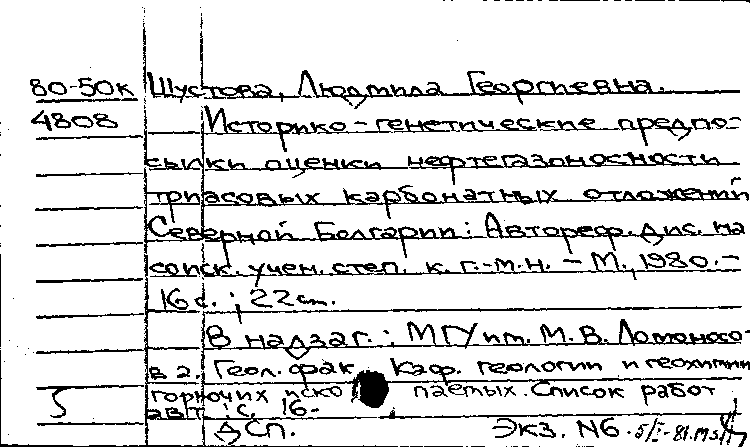 80-50к Шустова, Людмила Георгиевна.
4808 Историко-генетические предпо-
сылки оценки нефтегазоносности
триасовых карбонатных отложений
Северной Болгарии: Автореф. дис. на
соиск. учен. степ. к. г.-м.н. - М., 1980. -
16 с. ; 22 см.
В надзаг.: МГУ им. М. В. Ломоносо-
ва. Геол. фак. Каф. геологии и геохимии
горючих ископаемых. Список работ
5 авт.: с. 16.
ДСП. Экз. N6